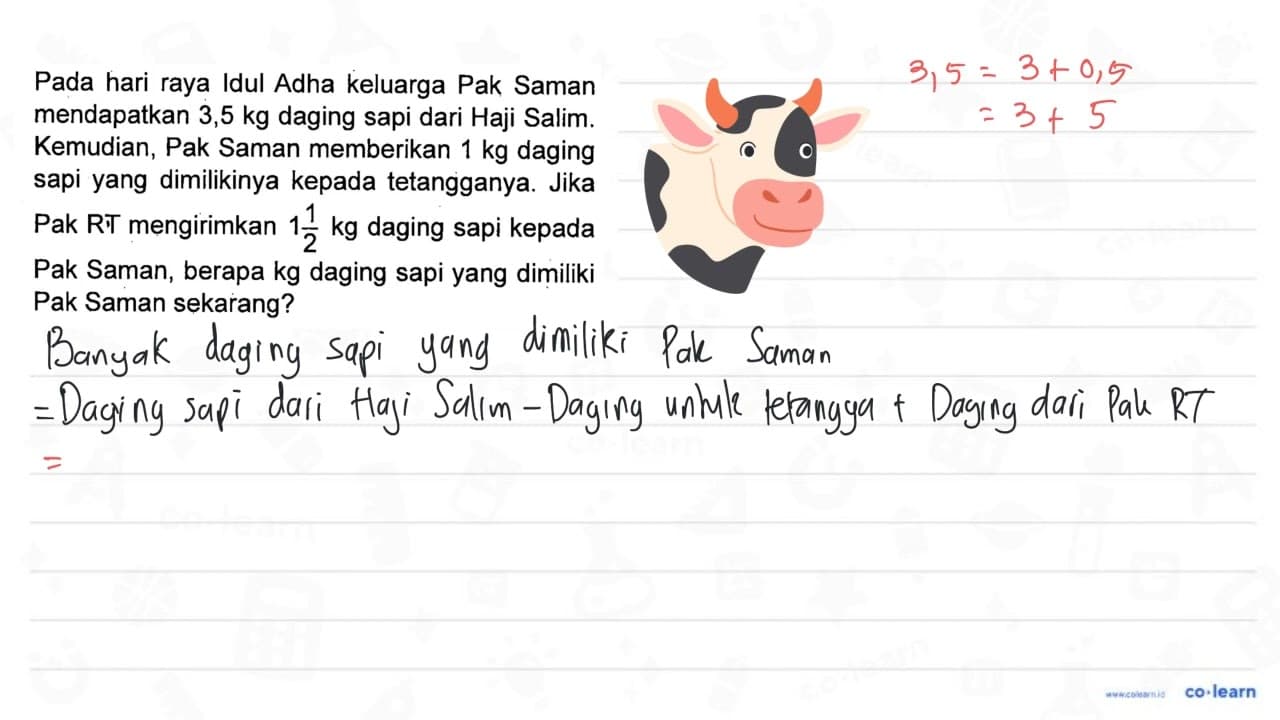 Pada hari raya Idul Adha keluarga Pak Saman
mendapatkan 3,5 kg daging sapi dari Haji Salim.
Kemudian, Pak Saman memberikan 1 kg daging
sapi yang dimilikinya kepada tetangganya. Jika
Pak RT mengirimkan 1 1/2 kg daging sapi kepada
Pak Saman, berapa kg daging sapi yang dimiliki
Pak Saman sekarang?
3,5 = 3 + 0,5
= 3 + 5
Banyak daging sapi yang dimiliki Pak Saman
= Daging sapi dari Haji Salim - Daging untuk tetangga + Daging dari Pak RT
=
www.colearn.id co·learn